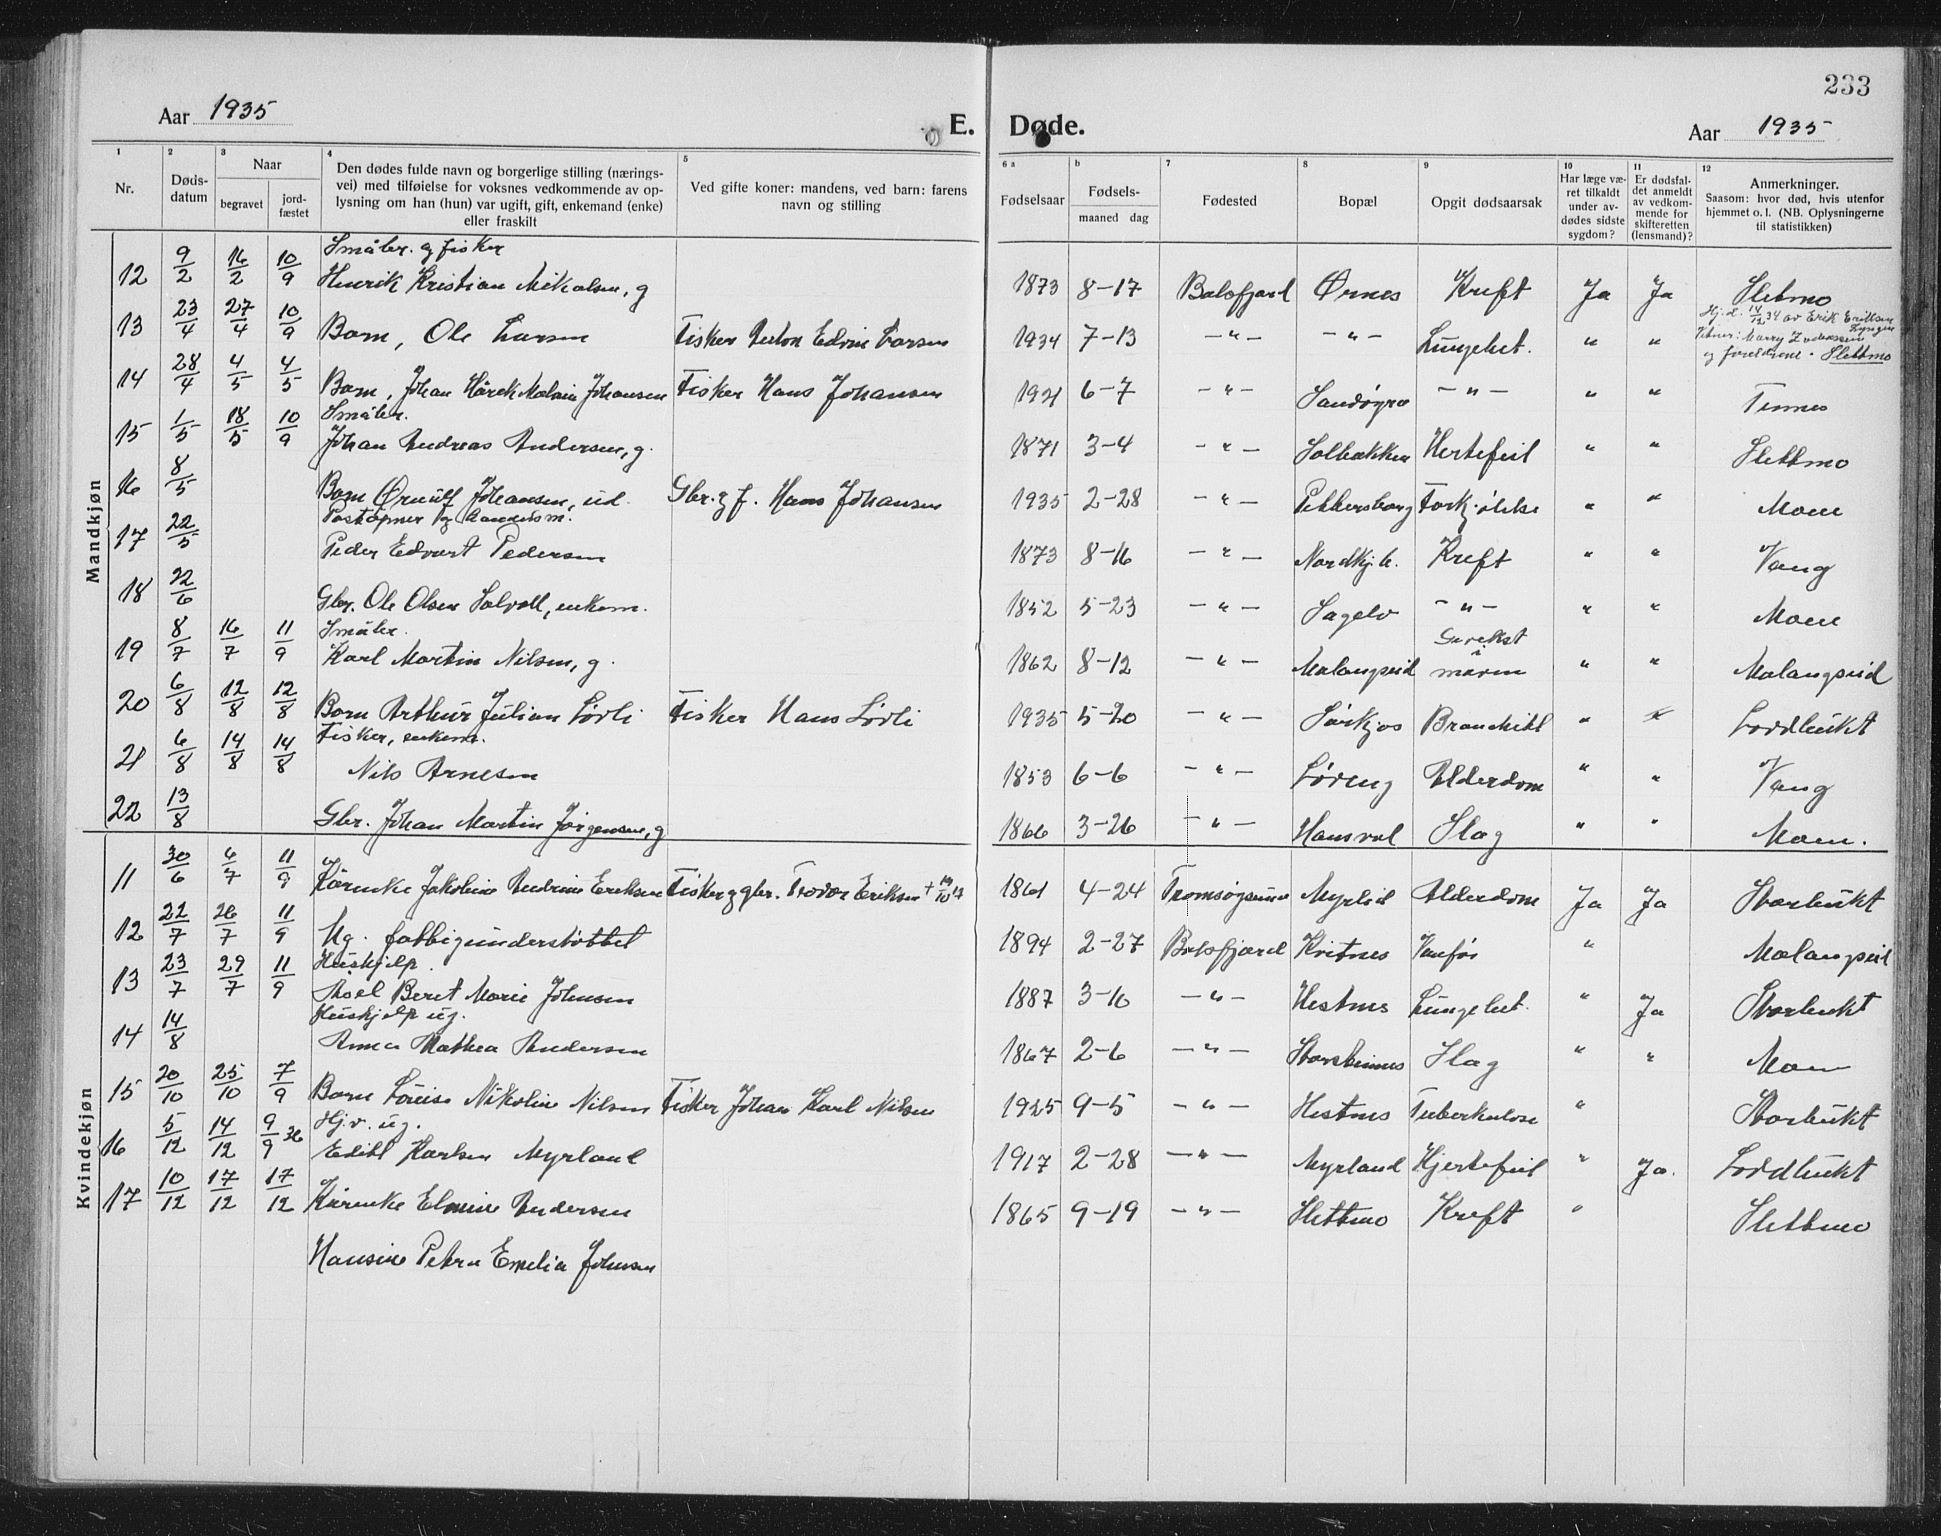 233
Aar 1935 E. Døde. Aar 1935
1 2 3 4 5 6 a b 7 8 9 10 11 12
Nr.
Døds-
datum
Naar
begravet
jord-
fæstet
Den dødes fulde navn og borgerlige stilling (nærings-
vei) med tilføielse for voksnes vedkommende av op-
lysning om han (hun) var ugift, gift, enkemand (enke)
eller fraskilt
Ved gifte koner: mandens, ved barn: farens
navn og stilling
Fødselsaar
Fødsels-
maaned dag
Fødested
Bopæl
Opgit dødsaarsak
Har læge væ-
ret tilkaldt
under av-
dødes sidste
sygdom?
Er dødsfal-
det anmeldt
av vedkom-
mende for
skifteretten
(lensmand)?
Anmerkninger.
Saasom: hvor død, hvis utenfor
hjemmet o. l. (NB. Oplysningerne
til statistikken)
Mandkjøn
Småbr. og fisker
12 9/2 16/2 10/9 Henrik Kristian Mikalsen, g 1873 8-17 Balsfjord Ørnes Kreft Ja Ja Slettmo
Hj.d. 14/12 34 av Erik Eriksen
Lyngen
13 23/4 27/4 10/9 Barn, Ole Larsen Fisker Anton Edvin Larsen 1934 7-13 -"- -"- Lungebet. " "
og foreldrene. Slettmo
14 28/4 4/5 4/5 Barn, Johan Hårek Johansen Fisker Hans Johansen 1921 6-7 -"- Sandøyra -"- " " Tennes
Småbr.
15 1/5 18/5 10/9 Johan Andreas Andersen, g. 1871 3-4 -"- Solbakken Hertefeil " " Slettmo
16 8/5 Barn Ørnulf Johansen, ud. Gbr. g f. Hans Johansen 1935 2-28 -"- Pikkersborg Forkjølelse " " Moen
Postopner og handelsm.
17 22/5 Peder Edvart Pedersen 1873 8-16 -"- Nordkj.b. Kreft " " Vang
18 22/6 Gbr. Ole Olsen Solvoll, enkem. 1852 5-23 -"- Sagelv -"- " " Moen
Småbr.
19 8/7 16/7 11/9 Karl Martin Nilsen, g. 1862 8-12 -"- Malangseid Svekst i maven " " Malangseid
20 6/8 12/8 12/8 Barn Arthur Julian Lødli Fisker Hans Lødli 1935 5-20 -"- Sørkjos Bronchitt " " Loddbukt
Fisker, enkem.
21 6/8 14/8 14/8 Nils Arnesen 1853 6-6 -"- Løveng Alderdom " " Vang
22 13/8 Gbr. Johan Martin Jørgensen, g 1866 3-26 -"- Hansvol Slag " " Moen.
Kvindekjøn
11 30/6 6/7 11/9 Kårenke Jakobine Andrine Eriksen Fisker g gbr. Teodor Eriksen + 19/10 17 1861 4-24 Tromsøysund Myrlid Alderdom Ja Ja Storbukt
12 22/7 26/7 11/9 Ug. fattigunderstøttet 1894 2-27 Balsfjord Kvitnes Vanfør " Malangseid
Huskjelp.
13 23/7 29/7 11/9 Asel Beret Marie Johnsen 1887 3-10 -"- Hestnes Lungebet. " Ja Storbukt
Huskjelp ug.
14 14/8 Anna Mathea Andersen 1867 2-6 -"- Storsteinnes Slag " " Moen
15 20/10 25/10 7/9 Barn Lovise Nikoline Nilsen Fisker Johan Karl Nilsen 1925 9-5 -"- Hestnes Tuberkulose " Storbukt
Hj.v. ug.
16 5/12 14/12 9/9 36 Edith Karlsen Myrland 1917 2-28 -"- Myrland Hjertefeil " Ja. Loddbukt
17 10/12 17/12 17/12 Kårenke Elmine Andersen 1865 9-19 -"- Slettmo Kreft " Slettmo
Hansine Petra Emelia Johnsen